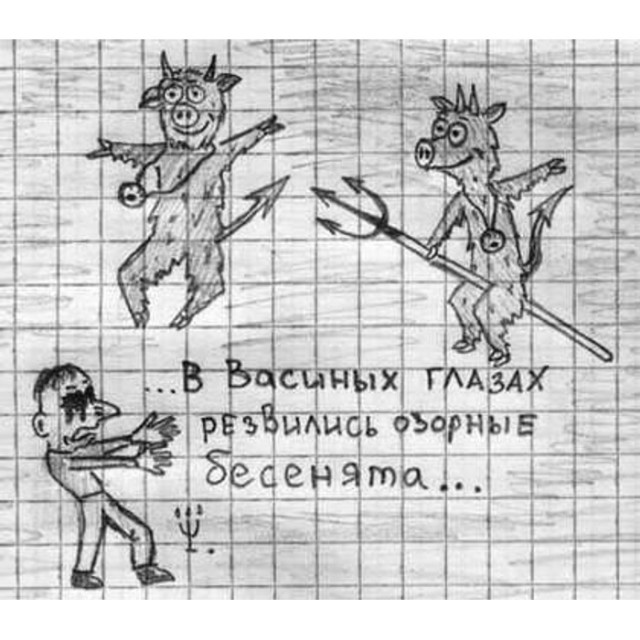 ...В Васиных глазах
резвились озорные
бесенята...